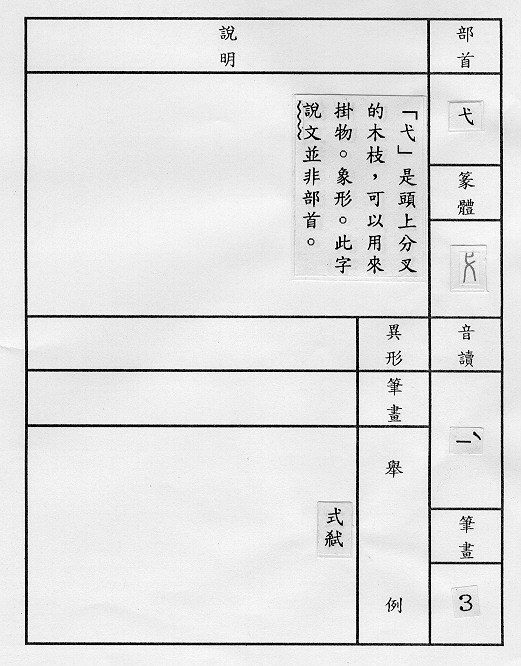 部首
弋
篆體
音讀
ㄧˋ
筆畫
3
說明
「弋」是頭上分叉
的木枝，可以用來
掛物。象形。此字
說文並非部首。
異形
筆畫
舉例
式弒